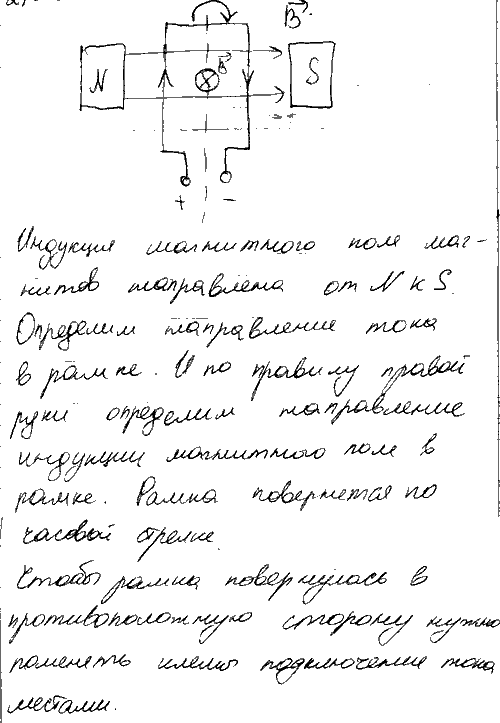 B.
N
B
S
+ -
Индукция магнитного поле маг-
нитов направлена от N к S.
Определим направление тока
в рамке. И по правилу правой
руки определим направление
индукции магнитного поле в
рамке. Рамка повернется по
часовой стрелке.
Чтобы рамка повернулась в
противоположную сторону нужно
поменять клемы подключение тока
местами.